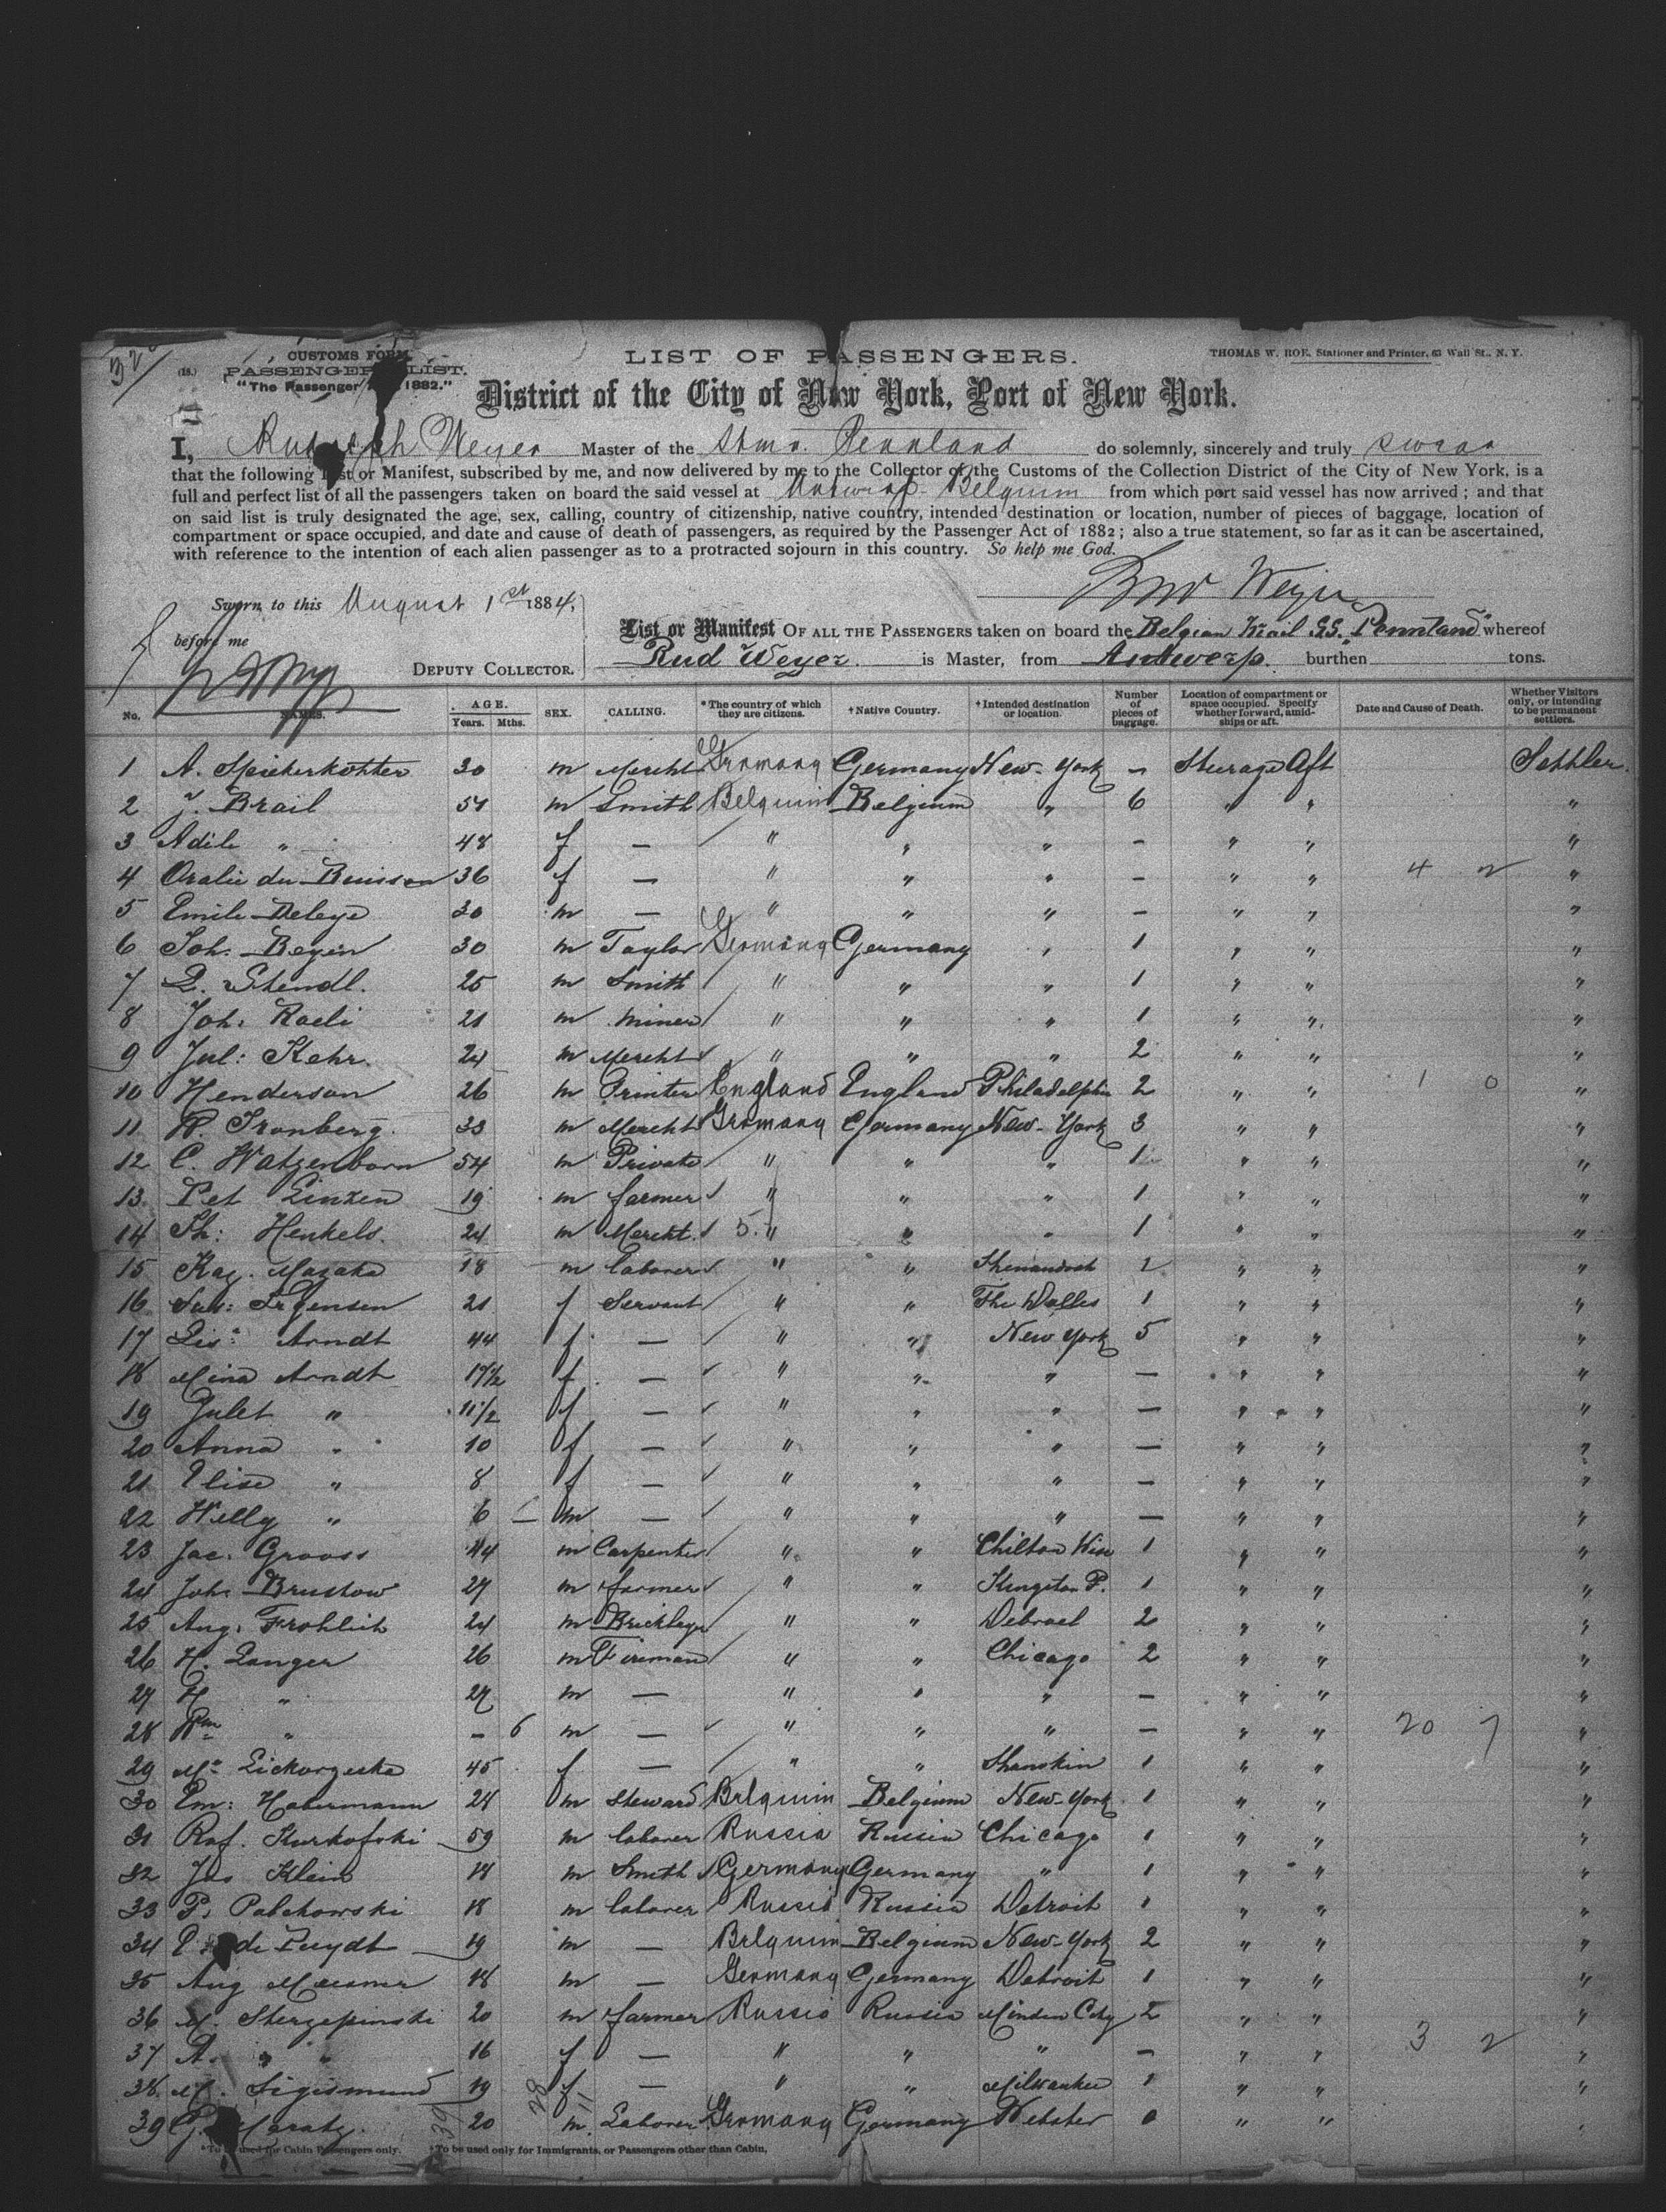 320
(18.)
CUSTOMS FORM.
PASSENGER LIST.
"The Passenger 1882."
LIST OF PASSENGERS.
THOMAS W. ROE, Stationer and Printer, 63 Wall St., N. Y.
District of the City of New York, Port of New York.
I, Rudolph Weyer Master of the Stmr. Pennland do solemnly, sincerely and truly swear
that the following List or Manifest, subscribed by me, and now delivered by me to the Collector of the Customs of the Collection District of the City of New York, is a
full and perfect list of all the passengers taken on board the said vessel at Antwerp Belgium from which port said vessel has now arrived; and that
on said list is truly designated the age, sex, calling, country of citizenship, native country, intended destination or location, number of pieces of baggage, location of
compartment or space occupied, and date and cause of death of passengers, as required by the Passenger Act of 1882; also a true statement, so far as it can be ascertained,
with reference to the intention of each alien passenger as to a protracted sojourn in this country. So help me God.
Rud Weyer
Sworn to this August 1st 1884,
before me
DEPUTY COLLECTOR.
List or Manifest OF ALL THE PASSENGERS taken on board the Belgian Mail SS. "Pennland" whereof
Rud Weyer is Master, from Antwerp. burthen tons.
No. NAMES. AGE. Years. Mths. SEX. CALLING. *The country of which they are citizens. †Native Country. †Intended destination or location. Number of pieces of baggage. Location of compartment or space occupied. Specify whether forward, amidships or aft. Date and Cause of Death. Whether Visitors only, or intending to be permanent settlers.
1 A. Spiekerkötter 30 m Mercht Germany Germany New-York - Sturage Aft Settler.
2 J. Brail 51 m Smith Belguim Belgium " 6 " " "
3 Adile " 48 f — " " " - " " "
4 Oralie du Buisson 36 f — " " " - " " 4 2 "
5 Emile Deleye 30 m — " " " - " " "
6 Joh. Beyin 30 m Taylor Germany Germany " 1 " " "
7 L. Stendl. 25 m Smith " " " 1 " " "
8 Joh: Raeli 21 m Miner " " " 1 " " "
9 Jul: Kehr. 24 m Mercht " " " 2 " " "
10 Henderson 26 m Printer England England Philadelphia 2 " " 1 0 "
11 H. Tronberg 33 m Mercht Germany Germany New-York 3 " " "
12 C. Watzenborn 54 m Private " " " 1 " " "
13 Pet Linzen 19 m farmer " " " 1 " " "
14 Th: Henkels. 24 m Mercht. 5. " " " 1 " " "
15 Kaz. Mazaka 18 m laborer " " Shenandoah 2 " " "
16 21 f Servant " " The Dalles 1 " " "
17 Lis: Arndt 44 f — " " New York 5 " " "
18 Mina Arndt 17½ f — " " " — " " "
19 Julet " 11½ f — " " " — " " "
20 Anna " 10 f — " " " — " " "
21 Elise " 8 f — " " " — " " "
22 Willy " 6 — m — " " " — " " "
23 Jac. Grooss 44 m Carpenter " " Chilton Wisc 1 " " "
24 Joh. Brustow 27 m farmer " " Kingston P. 1 " " "
25 Aug. Frohlich 24 m Bricklayer " " 2 " " "
26 H. Langer 26 m Fireman " " Chicago 2 " " "
27 H " 27 m — " " " — " " "
28 Wm " - 6 m — " " " — " " 20 7 "
29 45 f — " " Shamokin 1 " " "
30 Em: Habermann 24 m Steward Belguim Belgium New-York 1 " " "
31 Raf. Kurkofski 59 m laborer Russia Russia Chicago 1 " " "
32 Jos Klein 18 m Smith Germany Germany " 1 " " "
33 P. Palchowski 18 m laborer Russia Russia Detroit 1 " " "
34 de Puydt 19 m — Belguim Belgium New-York 2 " " "
35 Aug 18 m — Germany Germany Detroit 1 " " "
36 M. Sterzepinski 20 m farmer Russia Russia Minden City 2 " " "
37 A. " " 16 f — " " " — " " 3 2 "
38 M. Sigismund 19 f — " " Milwaukee 1 " " "
39 G. Maratz. 20 m Laborer Germany Germany Webster 0 " " "
39 28 11
*To be used for Cabin Passengers only. †To be used only for Immigrants, or Passengers other than Cabin,